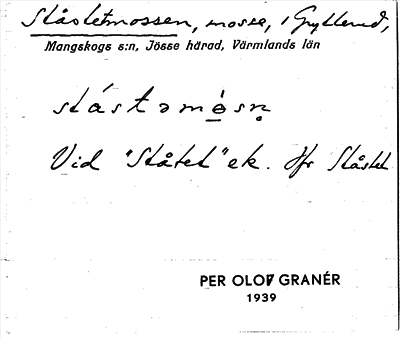 Ståstetmossen, mosse, i Gryttved,
Mangskogs s:n, Jösse härad, Värmlands län
stástəmòsn̥
Vid "Ståtet" ek. Jfr Ståstet
PER OLOF GRANÉR
1939